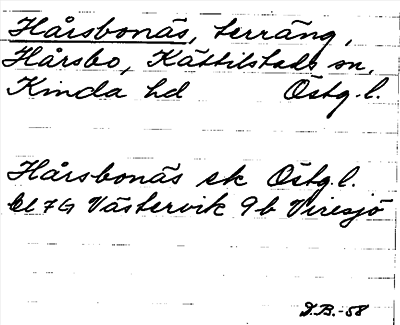 Hårsbonäs, terräng,
Hårsbo, Kättilstads sn.
Kinda hd Östg.l.
Hårsbonäs ek Östg.l.
bl 7G Västervik 9b Viresjö
D.B.-58